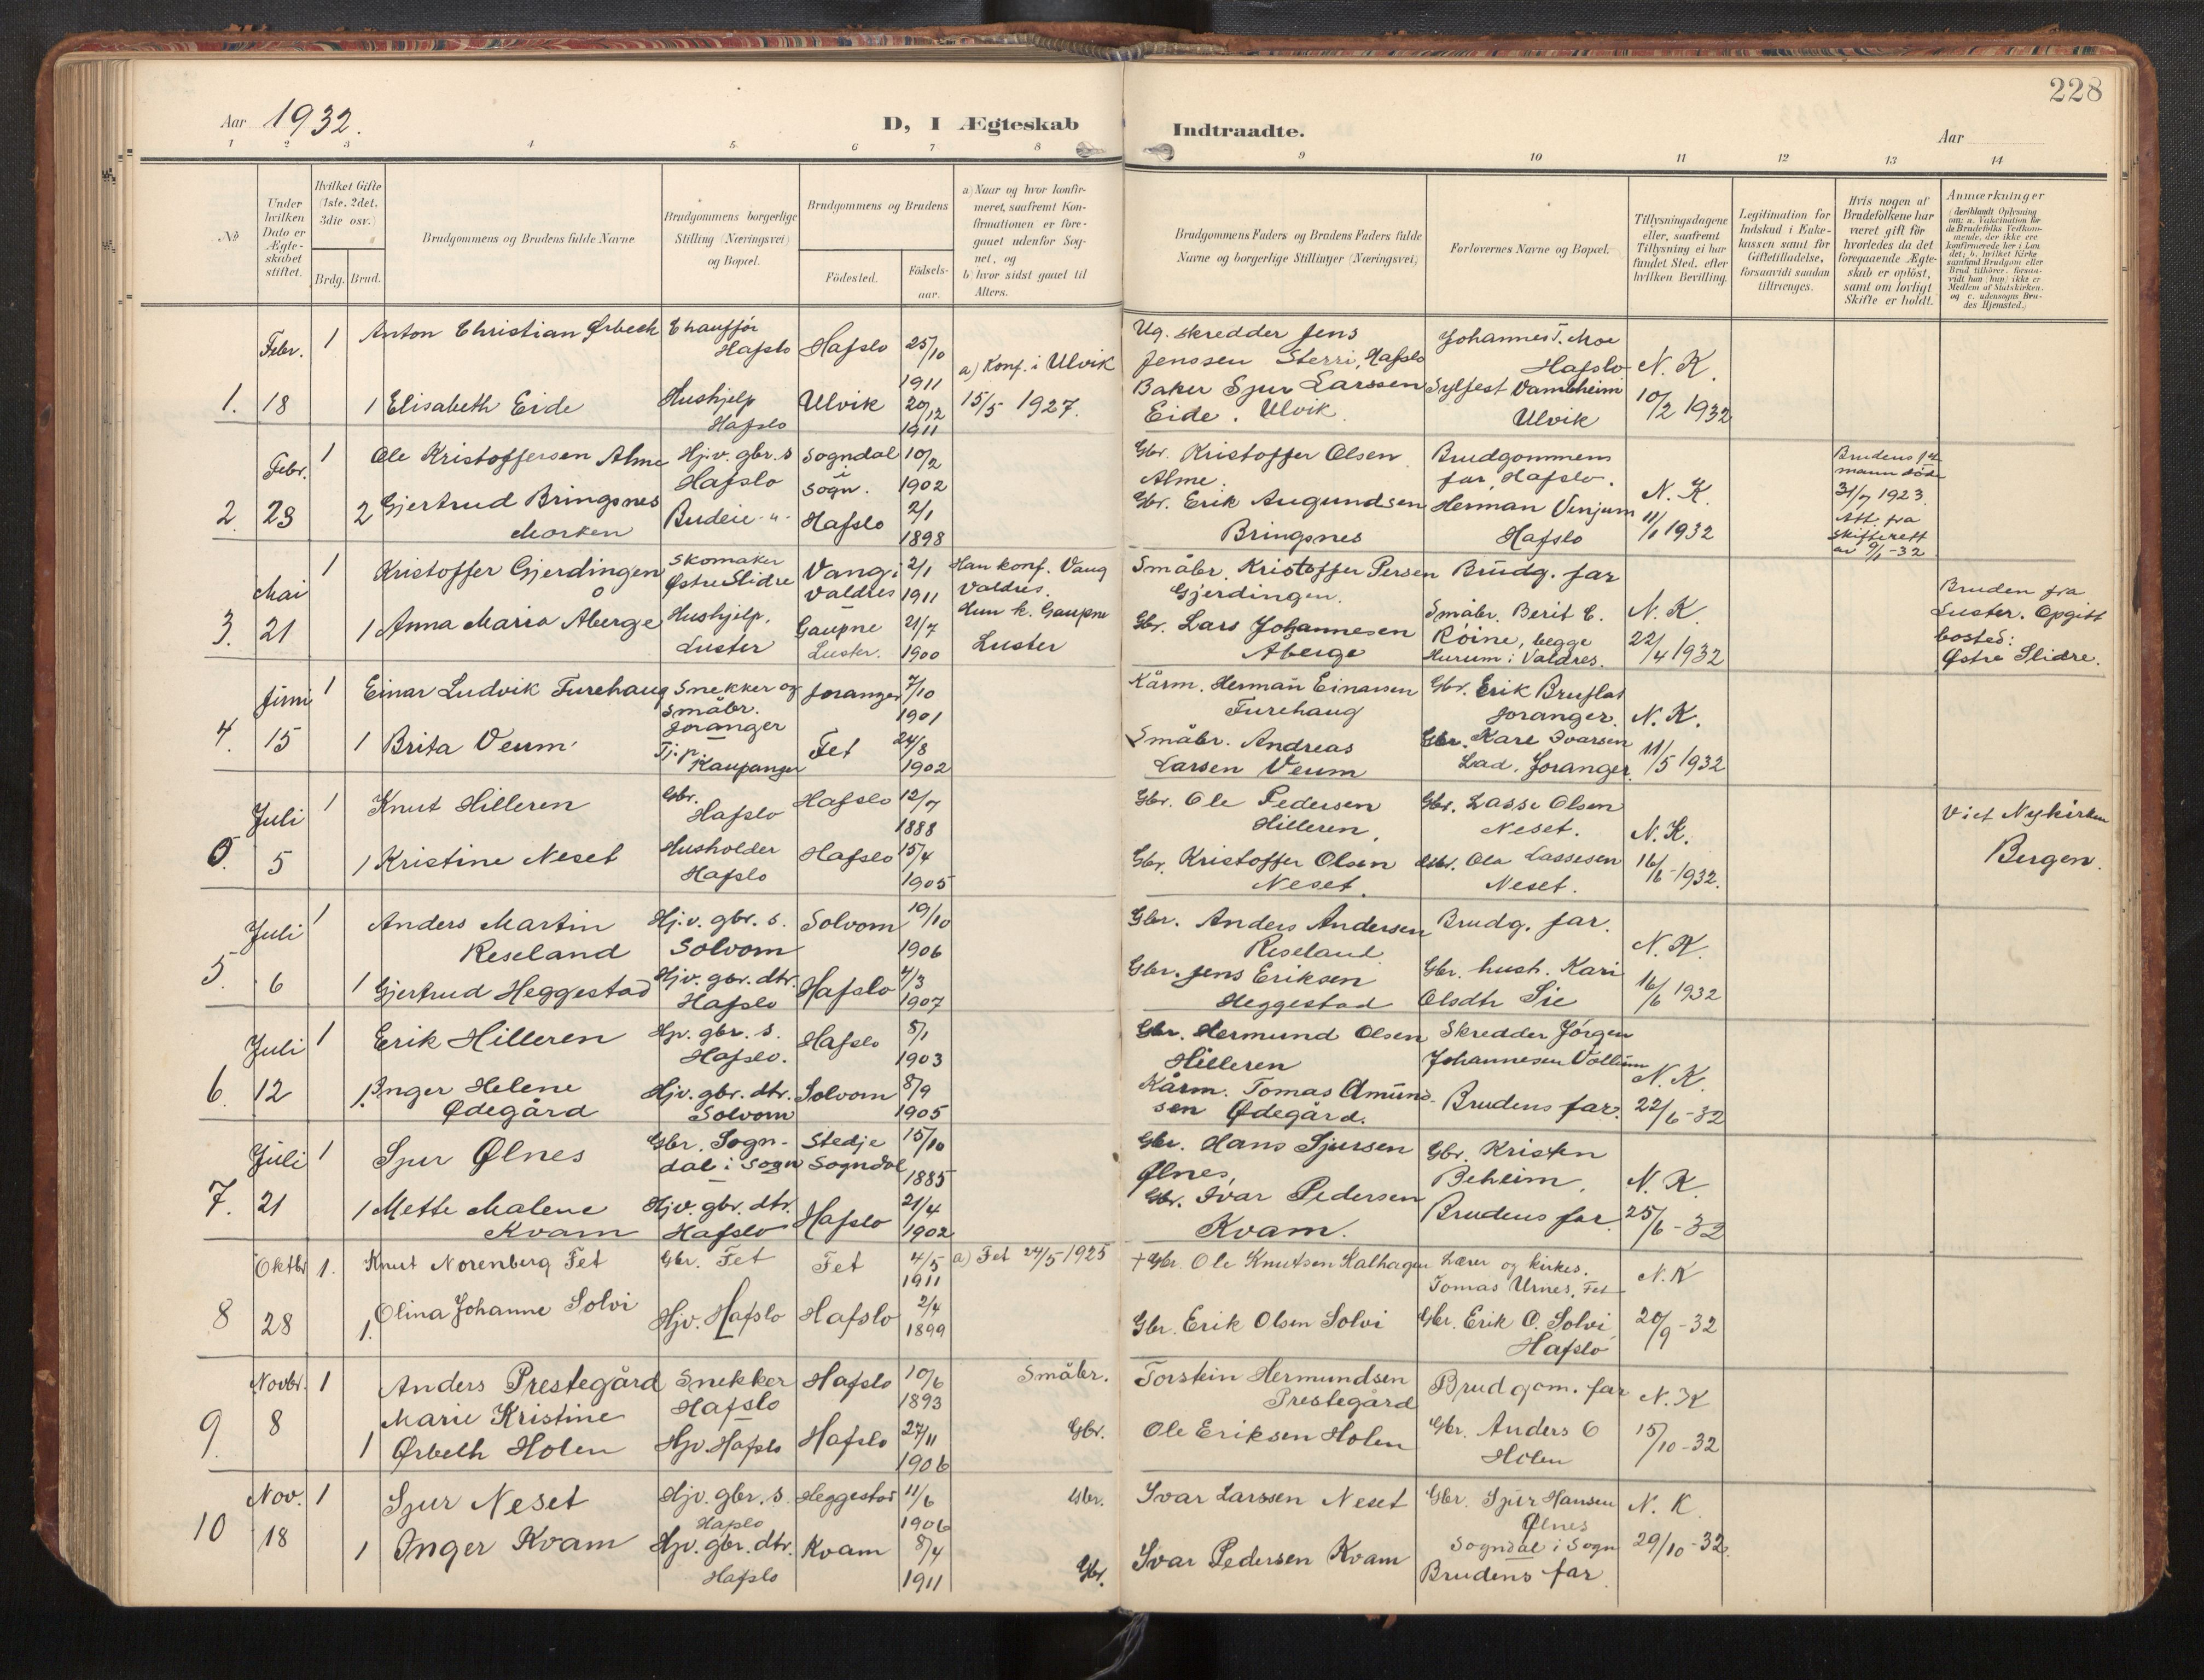 228
Aar 1932.
D, I Ægteskab Indtraadte.
Aar
1 2 3 4 5 6 7 8 9 10 11 12 13 14
No
Under hvilken Dato er Ægteskabet stiftet.
Hvilket Gifte (1ste, 2det, 3die osv.)
Brdg. Brud.
Brudgommens og Brudens fulde Navne
Brudgommens borgerlige Stilling (Næringsvei) og Bopæl.
Brudgommens og Brudens
Födested. Födsels-aar.
a) Naar og hvor konfirmeret, saafremt Konfirmationen er foregaaet udenfor Sognet, og
b) hvor sidst gaaet til Alters.
Brudgommens Faders og Brudens Faders fulde Navne og borgerlige Stillinger (Næringsvei)
Forlovernes Navne og Bopæl.
Tillysningsdagene eller, saafremt Tillysning ei har fundet Sted, efter hvilken Bevilling.
Legitimation for Indskud i Enkekassen samt for Giftetilladelse, forsaavidt saadan tiltrænges.
Hvis nogen af Brudefolkene har været gift før hvorledes da det foregaaende Ægteskab er oplöst, samt om lovligt Skifte er holdt.
Anmærkninger
(deriblandt Oplysning om: a. Vakcination for de Brudefolks Vedkommende, der ikke ere konfirmerede her i Landet; b. hvilket Kirkesamfund Brudgom eller Brud tilhörer, forsaavidt han (hun) ikke er Medlem af Statskirken, og c. udensogns Brudes Hjemsted.)
1. Febr. 18
1 Anton Christian Ørbech Chauffør Hafslo Hafslo 25/10 1911
Ug. skredder Jens Jenssen Sterri, Hafslo
Johannes T. Moe Hafslo
N. K. 10/2 1932
1 Elisabeth Eide Hushjelp Hafslo Ulvik 20/12 1911
a) Konf. i Ulvik 15/5 1927.
Baker Sjur Larssen Eide. Ulvik.
Sylfest Vambheim Ulvik
2. Febr. 23
1 Ole Kristoffersen Alme Hj.v. gbr. s Hafslo Sogndal i Sogn. 10/2 1902
Gbr. Kristoffer Olsen Alme.
Brudgommens far, Hafslo.
N. K. 11/1 1932
2 Gjertrud Bringsnes Morken Budeie -"- Hafslo 2/1 1898
Gbr. Erik Augundsen Bringsnes
Herman Venjum Hafslo
Brudens 1ste mann döde 31/7 1923. Att. fra skifterett av 9/1-32
3. Mai 21
1 Kristoffer Gjerdingen Skomaker Østre Slidre Vang i Valdres 2/1 1911
Han konf. Vang Valdres.
Småbr. Kristoffer Persen Gjerdingen.
Brudg. far
N. K. 22/4 1932
1 Anna Maria Åberge Hushjelp, Luster Gaupne Luster. 21/7 1900
Hun k. Gaupne Luster
Gbr. Lars Johannesen Åberge
Småbr. Berit C. Röine, begge Hurum i Valdres.
Bruden fra Luster. Opgitt bosted: Østre Slidre.
4. Juni 15
1 Einar Ludvik Furehaug Snekker og småbr. Joranger Joranger 7/10 1901
Kårm. Herman Einarsen Furehaug
Gbr. Erik Bruflat Joranger.
N. K. 11/5 1932
1 Brita Veum Tj. p. Kaupanger Fet 24/8 1902
Småbr. Andreas Larsen Veum
Gbr. Kare Ivarsen Lad, Joranger.
5 Juli 5
1 Knut Hilleren Gbr. Hafslo Hafslo 12/7 1888
Gbr. Ole Pedersen Hilleren.
Gbr. Lasse Olsen Neset.
N. K. 16/6-1932.
Viet Nykirken Bergen.
1 Kristine Neset Husholder Hafslo Hafslo 15/4 1905
Gbr. Kristoffer Olsen Neset.
Gbr. Ola Lassesen Neset.
5. Juli 6
1 Anders Martin Reseland Hj.v. gbr. s. Solvorn Solvorn 19/10 1906
Gbr. Anders Andersen Reseland
Brudg. far.
N. K. 16/6 1932
1 Gjertrud Heggestad Hjv. gbr. dtr. Hafslo Hafslo 4/3 1907
Gbr. Jens Eriksen Heggestad
Gbr. hustr. Kari Olsdtr Sie
6. Juli 12
1 Erik Hilleren Hjv. gbr. s. Hafslo. Hafslo 5/1 1903
Gbr. Hermund Olsen Hilleren
Skredder Jörgen Johannesen Vollum
N. K. 22/6-32
1. Inger Helene Ødegård Hjv. gbr. dtr. Solvorn Solvorn 8/9 1905
Kårm. Tomas Amundsen Ødegård.
Brudens far.
7. Juli 21
1 Sjur Ølnes Gbr. Sogndal i Sogn Stedje Sogndal 15/10 1885
Gbr. Hans Sjursen Ølnes,
Gbr. Kristen Beheim.
N. K. 25/6-32
1 Mette Malene Kvam Hjv. gbr. dtr. Hafslo Hafslo 21/4 1902
Gbr. Ivar Pedersen Kvam.
Brudens far.
8 Oktbr 28
1. Knut Norenberg Fet Gbr. Fet Fet 4/5 1911
a) Fet 24/5 1925
+ Gbr. Ole Knutsen Kalhagen
Lærer og kirkes. Tomas Urnes, Fet
N. K 20/9-32
1. Olina Johanne Solvi Hjv. Hafslo Hafslo 2/4 1899
Gbr. Erik Olsen Solvi
Gbr. Erik O. Solvi, Hafslo
9. Novbr. 8
1 Anders Prestegård Snekker Hafslo Hafslo 10/6 1893
Småbr. Torstein Hermundsen Prestegård
Brudgom. far
N. K 15/10-32
1 Marie Kristine Ørbech Holen Hjv. Hafslo Hafslo 27/11 1906
Gbr. Ole Eriksen Holen
Gbr. Anders O Holen
10 Nov. 18
1 Sjur Neset Hjv. gbr. s. Hafslo Heggestad 11/6 1906
Gbr. Ivar Larssen Neset
Gbr. Sjur Hansen Ølnes Sogndal i Sogn
N. K. 29/10-32.
1 Inger Kvam Hjv. gbr. dtr. Hafslo Kvam 8/4 1911
Gbr. Ivar Pedersen Kvam
Brudens far.